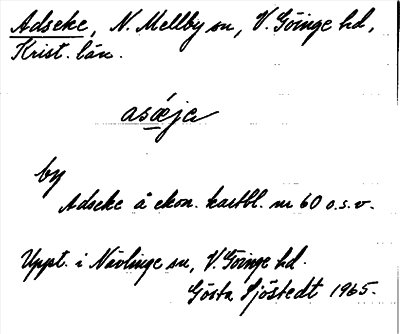 Adseke, N. Mellby sn, V. Göinge hd,
Krist. län.
asœ́je
by
Adseke å ekon. kartbl. nr 60 o.s.v.
Uppt. i Nävlinge sn, V. Göinge hd.
Gösta Sjöstedt 1965.